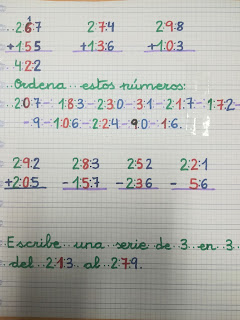 267 274 298
+155 +136 +103
422
Ordena estos números:
207-183-230-31-217-172-
-9-106-224-90-16.
292 283 252 221
+205 -157 -236 - 56
Escribe una serie de 3 en 3
del 213 al 279.